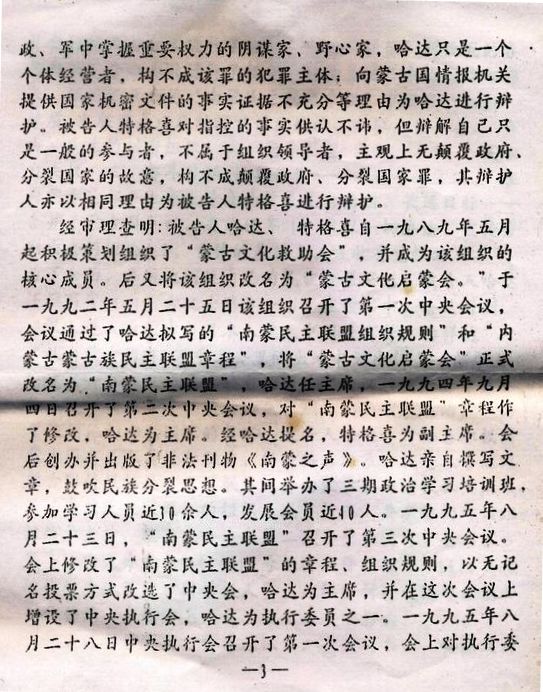 政、军中掌握重要权力的阴谋家、野心家，哈达只是一个
个体经营者，构不成该罪的犯罪主体；向蒙古国情报机关
提供国家机密文件的事实证据不充分等理由为哈达进行辩
护。被告人特格喜对指控的事实供认不讳，但辩解自己只
是一般的参与者，不属于组织领导者，主观上无颠覆政府、
分裂国家的故意，构不成颠覆政府、分裂国家罪，其辩护
人亦以相同理由为被告人特格喜进行辩护。
经审理查明：被告人哈达、特格喜自一九八九年五月
起积极策划组织了“蒙古文化救助会”，并成为该组织的
核心成员。后又将该组织改名为“蒙古文化启蒙会。”于
一九九二年五月二十五日该组织召开了第一次中央会议，
会议通过了哈达拟写的“南蒙民主联盟组织规则”和“内
蒙古蒙古族民主联盟章程”，将“蒙古文化启蒙会”正式
改名为“南蒙民主联盟”，哈达任主席，一九九四年九月
四日召开了第二次中央会议，对“南蒙民主联盟”章程作
了修改，哈达为主席。经哈达提名，特格喜为副主席。会
后创办并出版了非法刊物《南蒙之声》。哈达亲自撰写文
章，鼓吹民族分裂思想。其间举办了三期政治学习培训班，
参加学习人员近30余人，发展会员近40人。一九九五年八
月二十三日，“南蒙民主联盟”召开了第三次中央会议。
会上修改了“南蒙民主联盟”的章程、组织规则，以无记
名投票方式改选了中央会，哈达为主席，并在这次会议上
增设了中央执行会，哈达为执行委员之一。一九九五年八
月二十八日中央执行会召开了第一次会议，会上对执行委
—3—